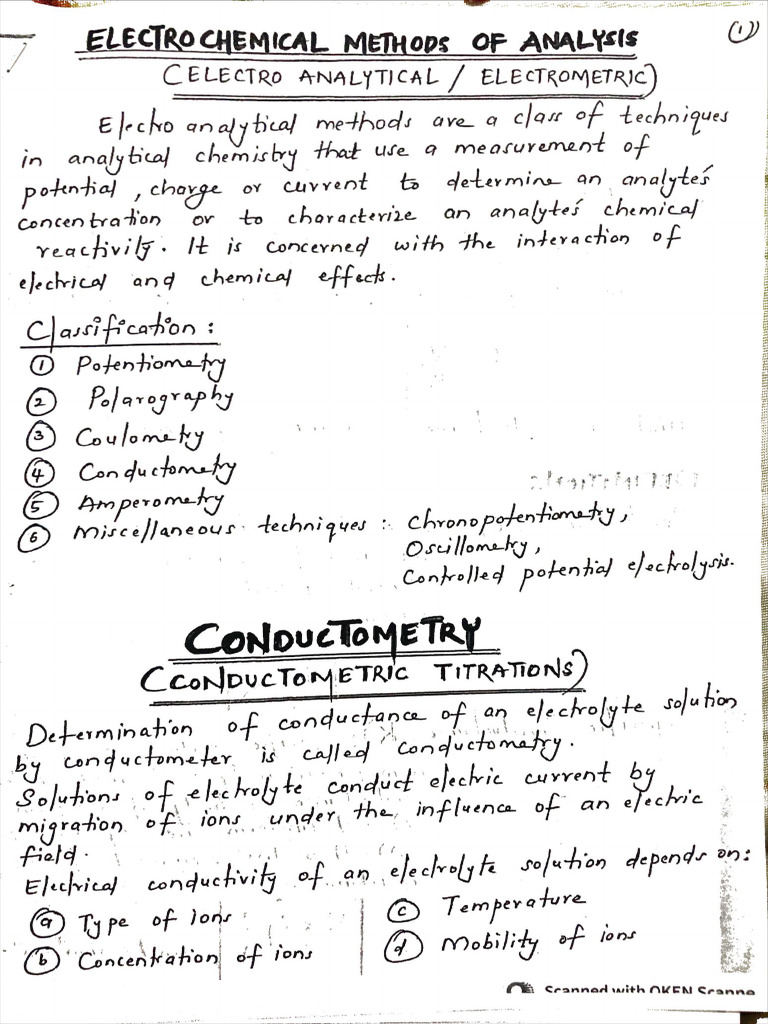 ①
ELECTROCHEMICAL METHODS OF ANALYSIS
(ELECTRO ANALYTICAL / ELECTROMETRIC)
Electro analytical methods are a class of techniques
in analytical chemistry that use a measurement of
potential, charge or current to determine an analyte's
concentration or to characterize an analyte's chemical
reactivity. It is concerned with the interaction of
electrical and chemical effects.
Classification :
① Potentiometry
② Polarography
③ Coulometry
④ Conductometry
⑤ Amperometry
⑥ Miscellaneous techniques : Chronopotentiometry,
Oscillometry,
Controlled potential electrolysis.
CONDUCTOMETRY
(CONDUCTOMETRIC TITRATIONS)
Determination of conductance of an electrolyte solution
by conductometer is called conductometry.
Solutions of electrolyte conduct electric current by
migration of ions under the influence of an electric
field.
Electrical conductivity of an electrolyte solution depends on:
ⓐ Type of ions
ⓑ Concentration of ions
ⓒ Temperature
ⓓ Mobility of ions
Scanned with OKEN Scanne